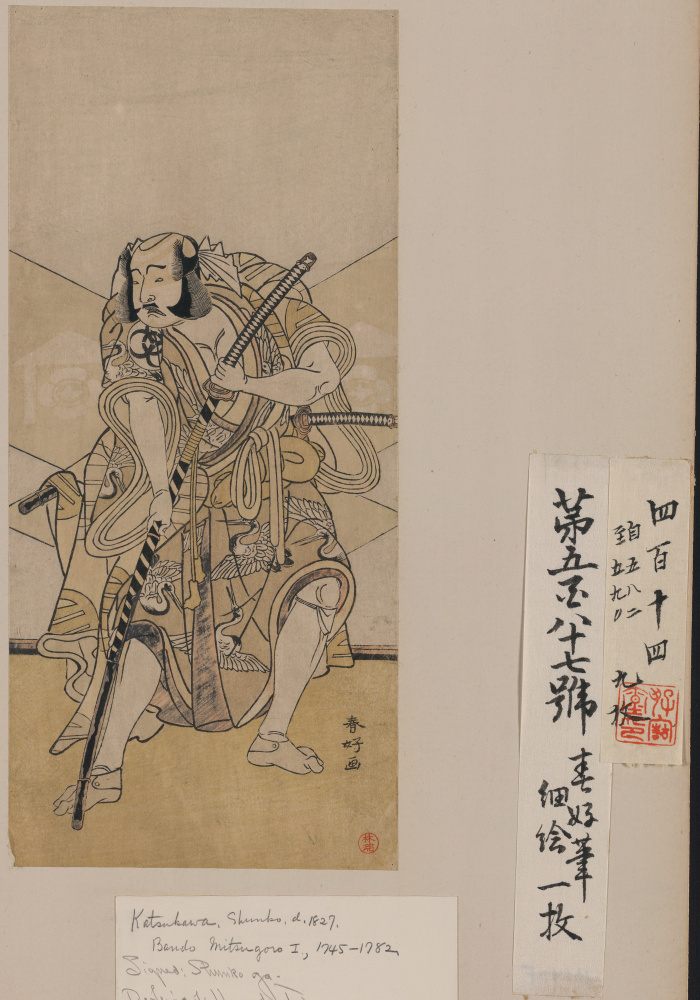 春好画
四百十四
自五八二
至五九〇
九枚
第五百八十七號
春好筆
細絵一枚
Katsukawa, Shunko, d. 1827.
Bando Mitsugoro I, 1745–1782
Signed: Shunko ga.